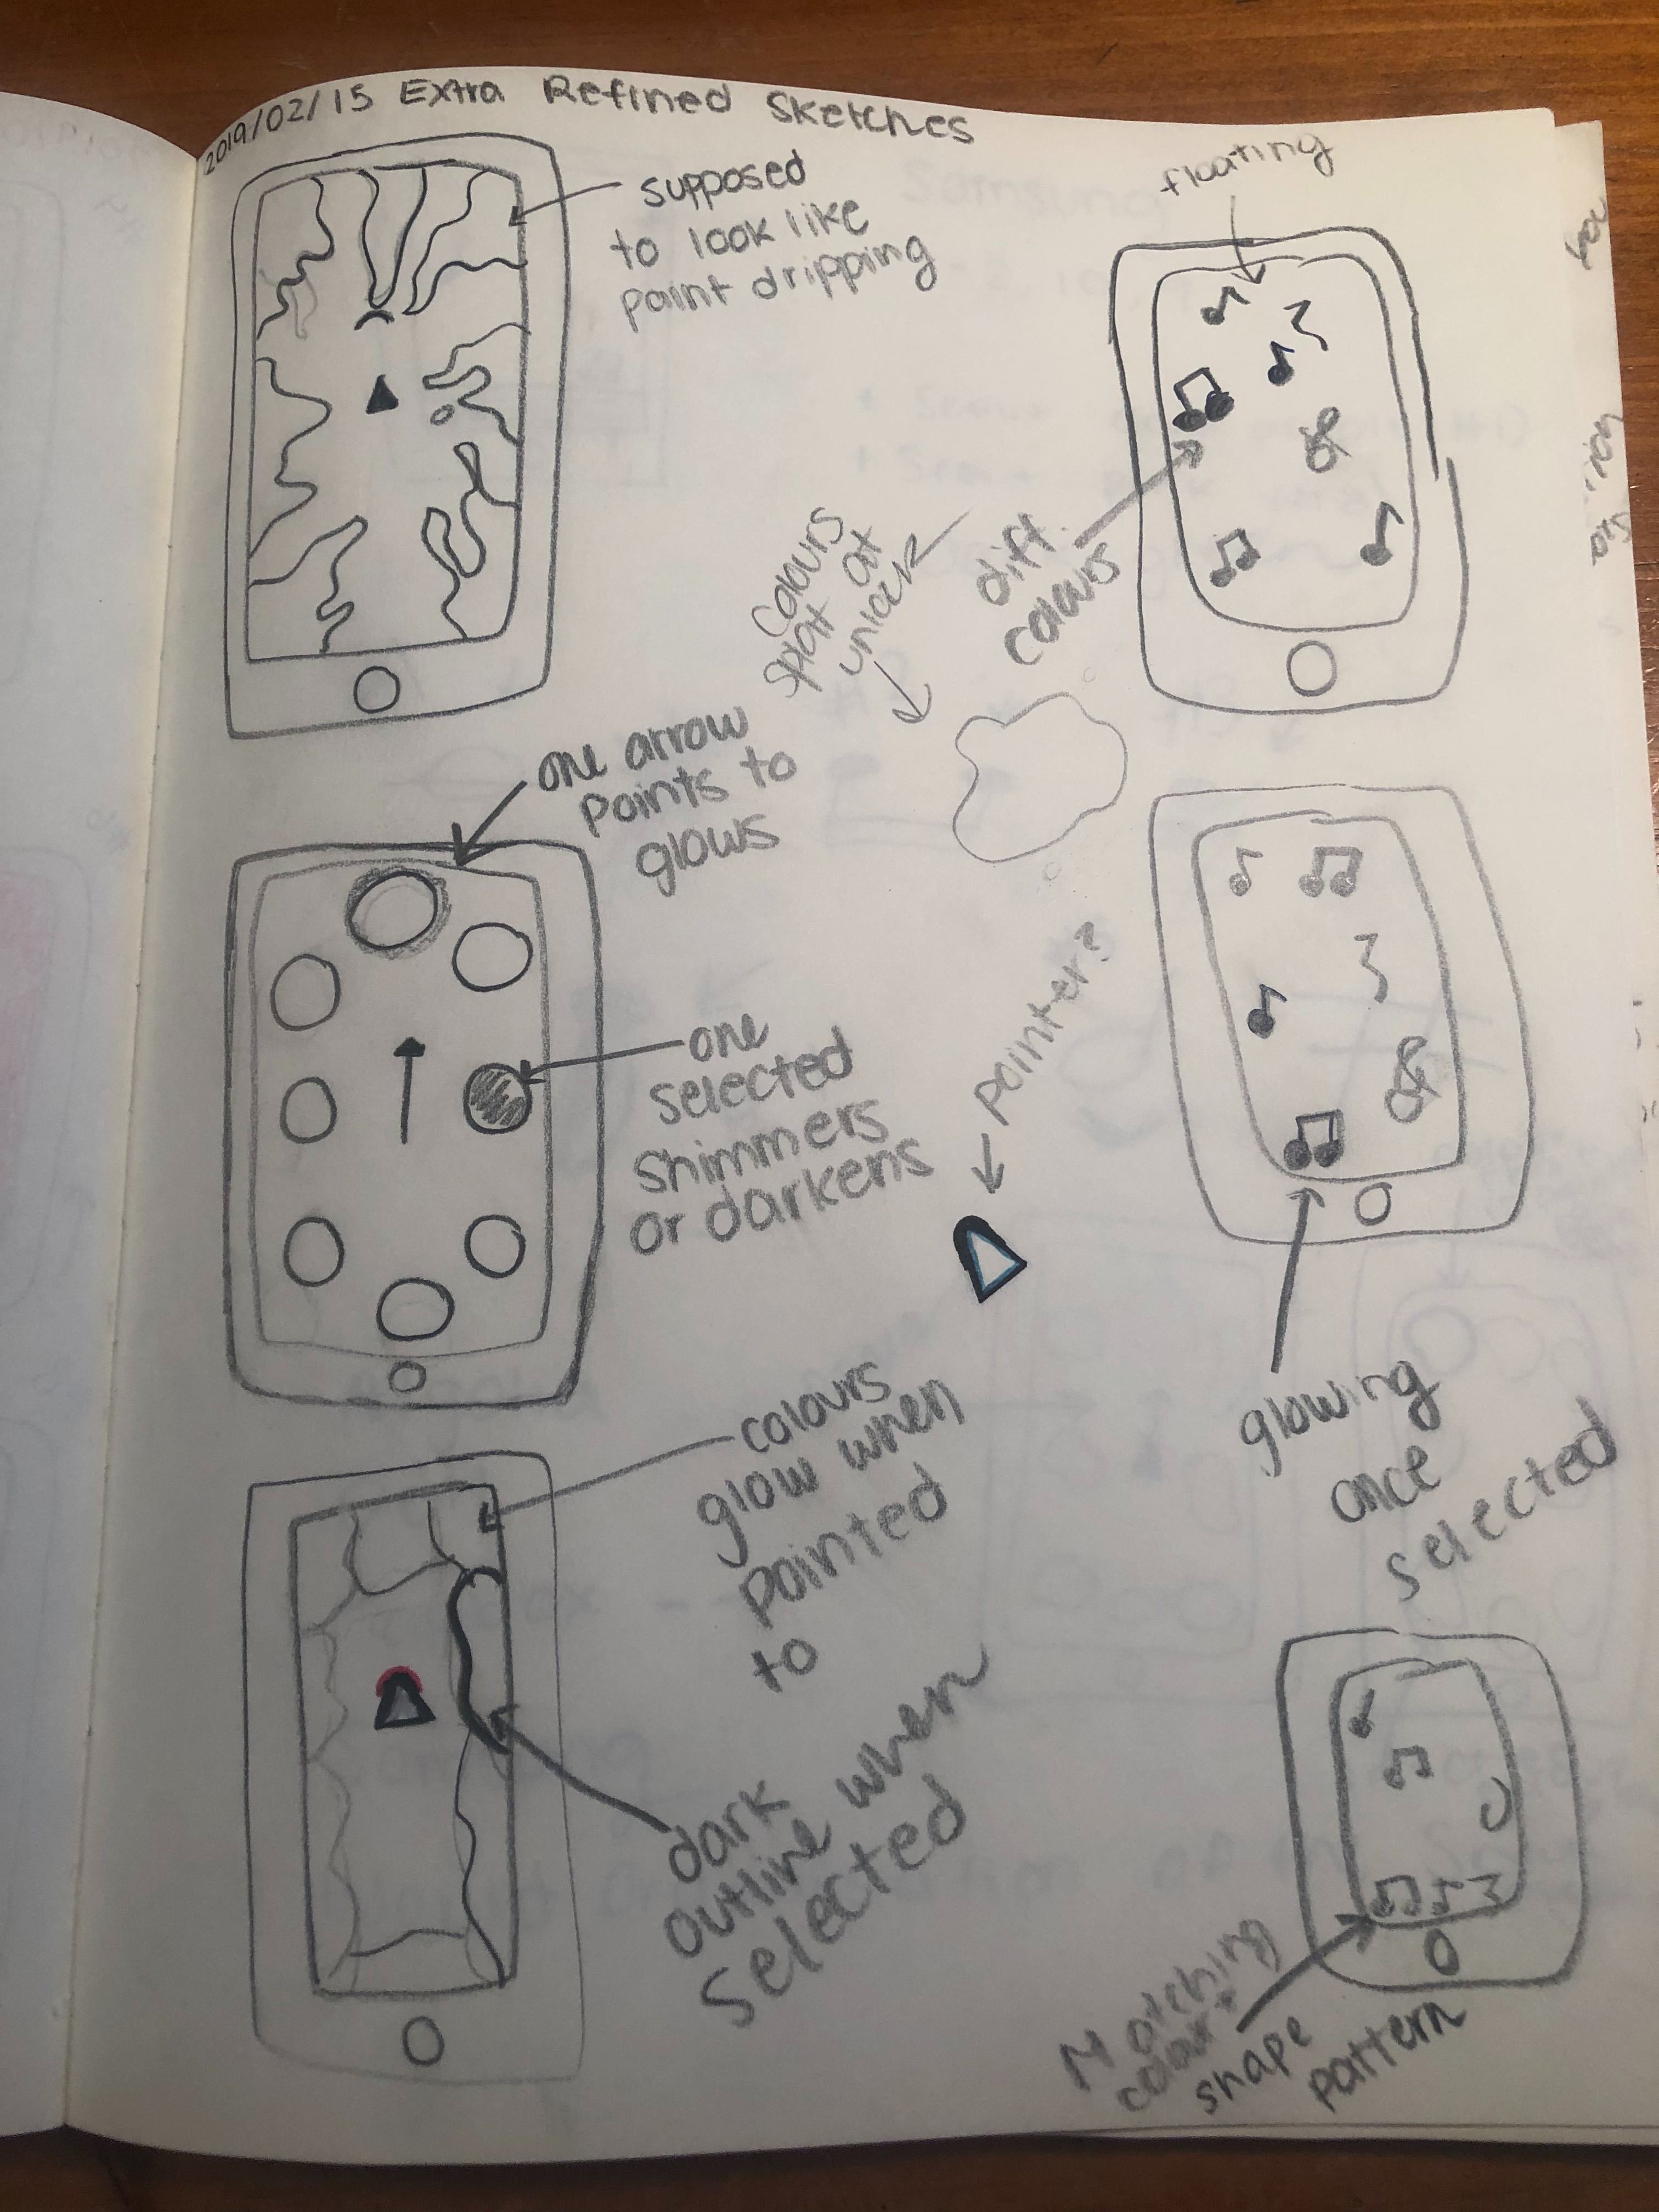 2019/02/15 Extra Refined Sketches
supposed
to look like
paint dripping
floating
diff.
colours
colours
splat
at
unlock
one arrow
points to
glows
one
selected
shimmers
or darkens
pointer?
glowing
once
selected
colours
glow when
pointed
to
dark
outline when
selected
Matching
colour +
shape
pattern